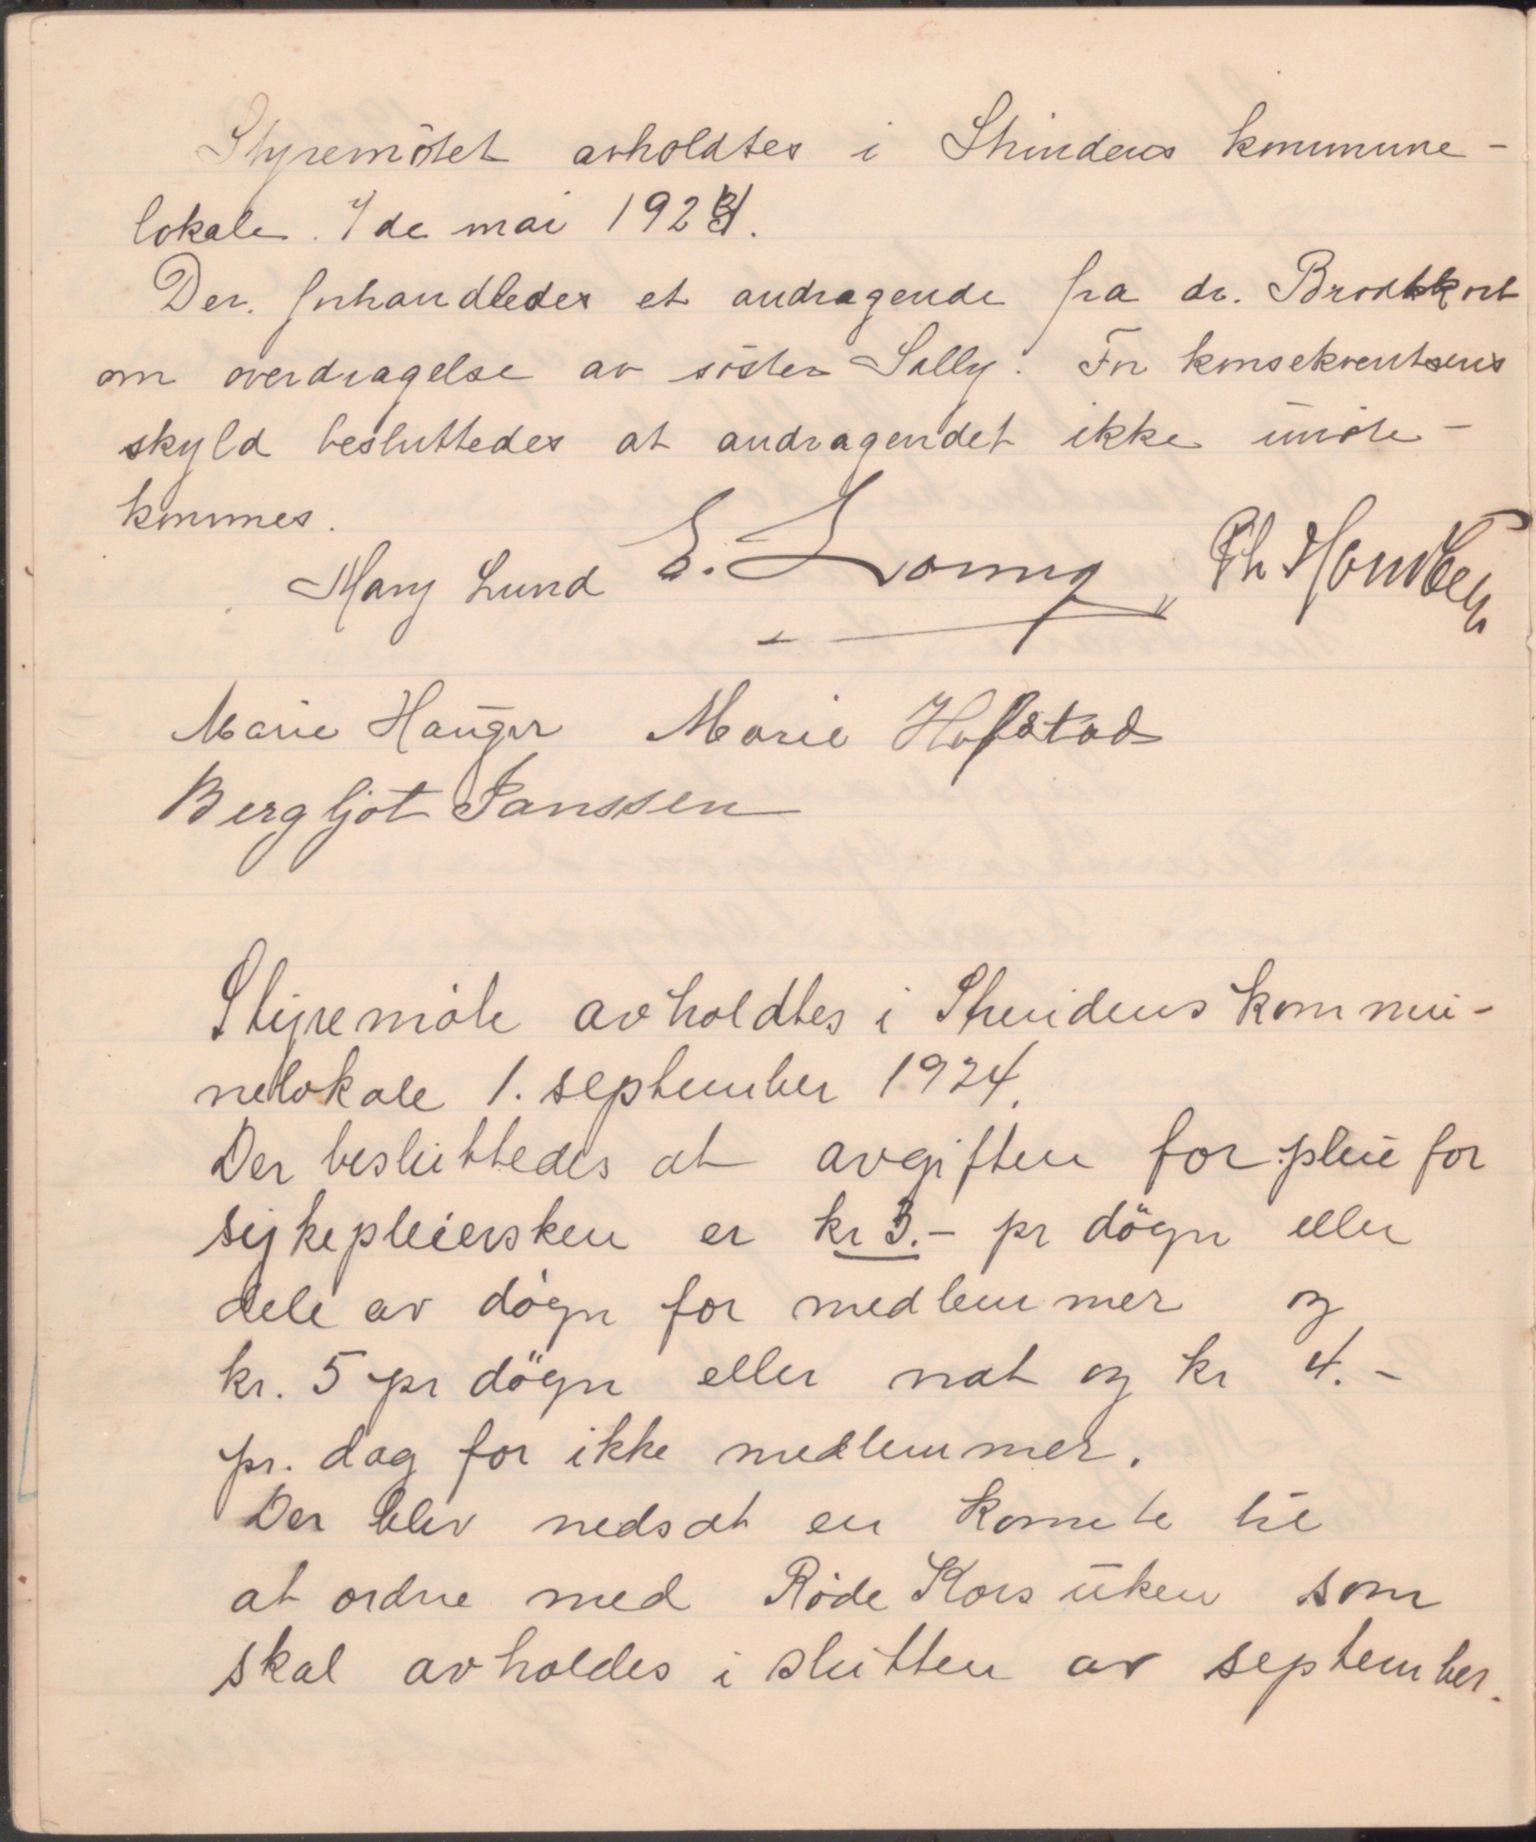 Styremötet avholdtes i Strindens kommune-
lokale. 7de mai 1924.
Der. forhandledes et andragende fra dr. Brodtkorb
om overdragelse av söster Sally. For konsekventsens
skyld besluttedes at andragendet ikke imöte-
kommes.
Mary Lund E.
Marie Hauger Marie Hofstad
Bergljot Janssen
Styremöte avholdtes i Strindens kommu-
nelokale 1. september 1924.
Der besluttedes at avgiften for pleie for
sykepleiersken er kr 3.- pr dögn eller
dele av dögn for medlemmer og
kr. 5 pr dögn eller nat og kr 4.-
pr. dag for ikke medlemmer.
Der blev nedsat en komite til
at ordne med Röde Kors uken som
skal avholdes i slutten av september.